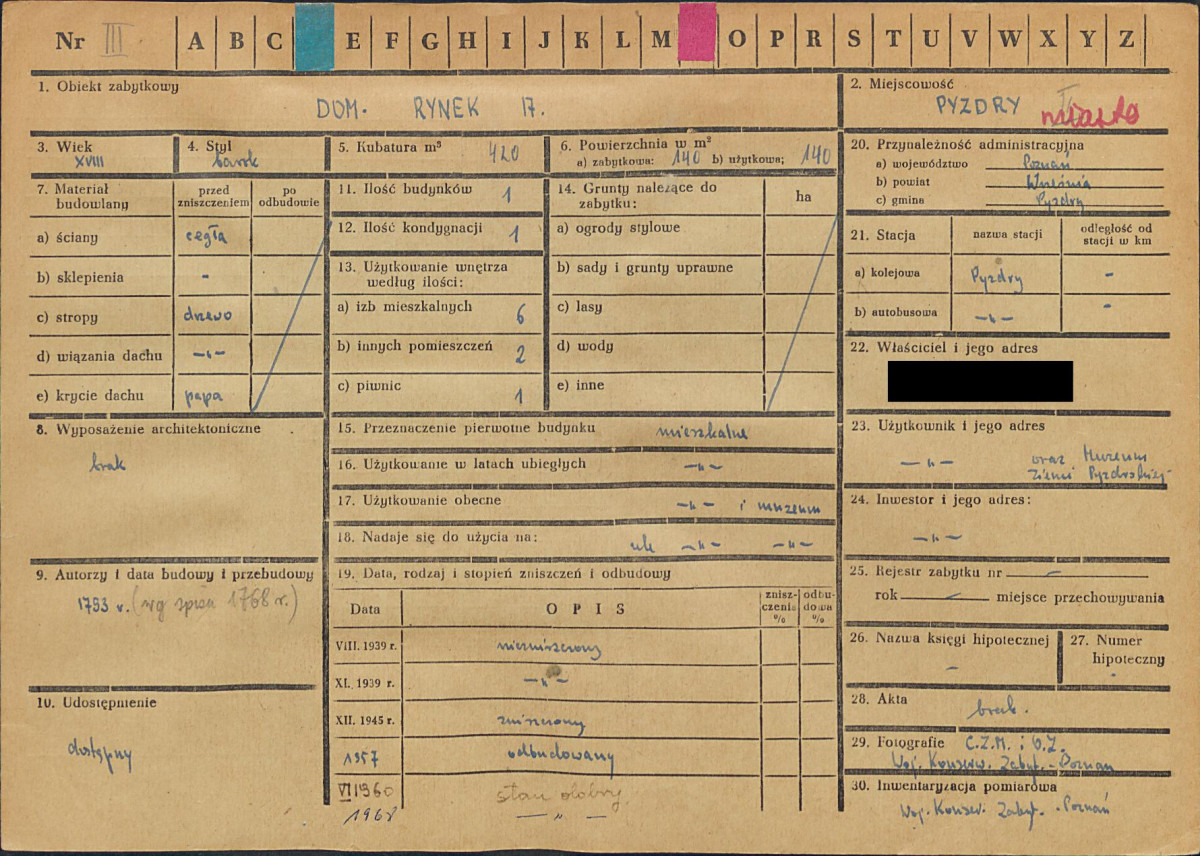 Nr III A B C E F G H I J K L M O P R S T U V W X Y Z
1. Obiekt zabytkowy
DOM. RYNEK 17.
2. Miejscowość
PYZDRY miasto
3. Wiek
XVIII
4. Styl
barok
5. Kubatura m³ 420
6. Powierzchnia w m²
a) zabytkowa: 140 b) użytkowa; 140
7. Materiał budowlany
przed zniszczeniem
po odbudowie
a) ściany cegła
b) sklepienia -
c) stropy drzewo
d) wiązania dachu -„-
e) krycie dachu papa
8. Wyposażenie architektoniczne
brak
9. Autorzy i data budowy i przebudowy
1793 r. (wg spisu 1768 r.)
10. Udostępnienie
dostępny
11. Ilość budynków 1
12. Ilość kondygnacji 1
13. Użytkowanie wnętrza
według ilości:
a) izb mieszkalnych 6
b) innych pomieszczeń 2
c) piwnic 1
14. Grunty należące do
zabytku:
ha
a) ogrody stylowe
b) sady i grunty uprawne
c) lasy
d) wody
e) inne
15. Przeznaczenie pierwotne budynku mieszkalne
16. Użytkowanie w latach ubiegłych -„-
17. Użytkowanie obecne -„- i muzeum
18. Nadaje się do użycia na: -„- -„-
19. Data, rodzaj i stopień zniszczeń i odbudowy
Data
OPIS
znisz-
czenia
%
odbu-
dowa
%
VIII. 1939 r. niezniszczony
XI. 1939 r. -„-
XII. 1945 r. zniszczony
1957 odbudowany
VI 1960 stan dobry
1968 -„-
20. Przynależność administracyjna
a) województwo Poznań
b) powiat Września
c) gmina Pyzdry
21. Stacja
nazwa stacji
odległość od
stacji w km
a) kolejowa Pyzdry -
b) autobusowa -„- -
22. Właściciel i jego adres
23. Użytkownik i jego adres
-„- oraz Muzeum
Ziemi Pyzdrskiej
24. Inwestor i jego adres:
-„-
25. Rejestr zabytku nr -
rok - miejsce przechowywania
26. Nazwa księgi hipotecznej
-
27. Numer
hipoteczny
-
28. Akta
brak.
29. Fotografie C.Z.M. i O.Z.
Woj. Konserw. Zabyt. - Poznań
30. Inwentaryzacja pomiarowa
Woj. Konser. Zabyt. - Poznań